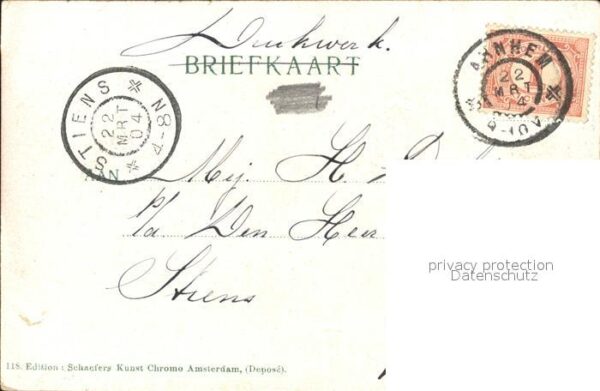 Drukwerk.
BRIEFKAART
ARNHEM
22
MRT
04
STIENS
22
MRT
04
N 4-8
AAN
Mej. H
p/a Den Heer
Stiens
privacy protection
Datenschutz
118. Edition: Schaefers Kunst Chromo Amsterdam, (Deposé).